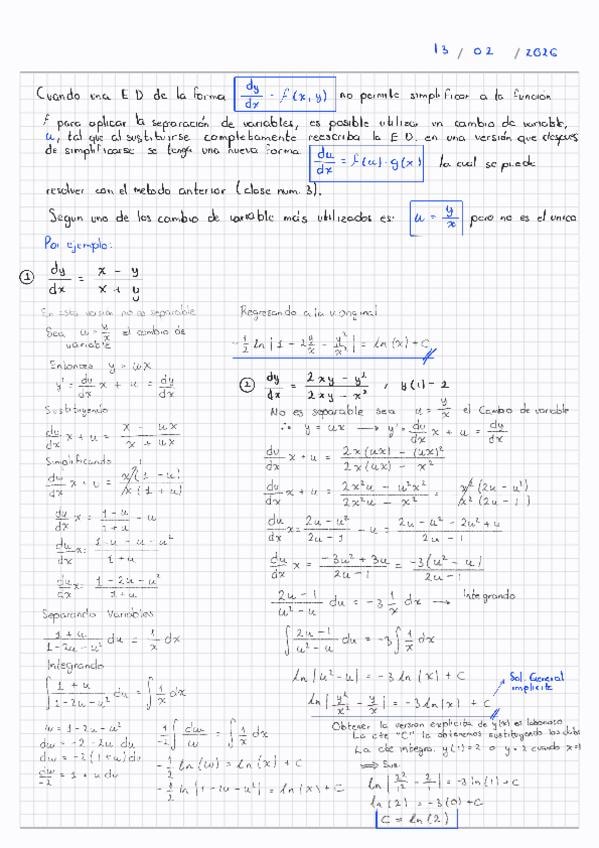 13 / 02 / 2026
Cuando una E D de la forma dy/dx = f(x,y) no permite simplificar a la función
f para aplicar la separación de variables, es posible utilizar un cambio de variable,
u, tal que al sustituirse completamente reescriba la E.D. en una versión que después
de simplificarse se tenga una nueva forma du/dx = f(u)·g(x) la cual se puede
resolver con el metodo anterior (clase num. 3).
Segun uno de los cambio de variable más utilizados es: u = y/x pero no es el unico
Por ejemplo:
① dy/dx = x - y / x + y
En esta versión no es separable
Sea u = y/x el cambio de
variable
Entonces y = ux
y' = du/dx x + u = dy/dx
Sustituyendo
du/dx x + u = x - ux / x + ux
Simplificando
du/dx x + u = x(1 - u) / x(1 + u)
du/dx x = 1 - u / 1 + u - u
du/dx x = 1 - u - u - u² / 1 + u
du/dx x = 1 - 2u - u² / 1 + u
Separando Variables
1 + u / 1 - 2u - u² du = 1/x dx
Integrando
∫ 1 + u / 1 - 2u - u² du = ∫ 1/x dx
w = 1 - 2u - u²
dw = -2 - 2u du
dw = -2(1+u) du
dw/-2 = 1 + u du
1/-2 ∫ dw/w = ∫ 1/x dx
-1/2 ln(w) = ln(x) + C
-1/2 ln|1 - 2u - u²| = ln(x) + C
Regresando a la v. original
-1/2 ln|1 - 2y/x - y²/x²| = ln(x) + C
② dy/dx = 2xy - y² / 2xy - x² , y(1) = 2
No es separable sea u = y/x el Cambio de variable
∴ y = ux → y' = du/dx x + u = dy/dx
du/dx x + u = 2x(ux) - (ux)² / 2x(ux) - x²
du/dx x + u = 2x²u - u²x² / 2x²u - x² = x²(2u - u²) / x²(2u - 1)
du/dx x = 2u - u² / 2u - 1 - u = 2u - u² - 2u² + u / 2u - 1
du/dx x = -3u² + 3u / 2u - 1 = -3(u² - u) / 2u - 1
2u - 1 / u² - u du = -3 1/x dx → Integrando
∫ 2u - 1 / u² - u du = -3 ∫ 1/x dx
ln|u² - u| = -3 ln(x) + C
ln|y²/x² - y/x| = -3 ln(x) + C
Sol. General
implicita
Obtener la versión explicita de y(x) es laborioso
La cte "C" la obtenemos sustituyendo los
La cte integra. y(1) = 2 o y = 2 cuando x = 1
⟹ Sus.
ln|2²/1² - 2/1| = -3 ln(1) + C
ln(2) = -3(0) + C
C = ln(2)